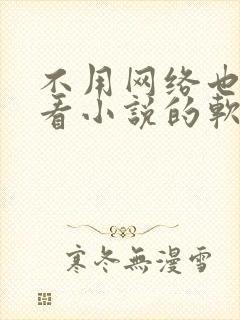 不用网络也
看小説的軟
寒冬無漫雪